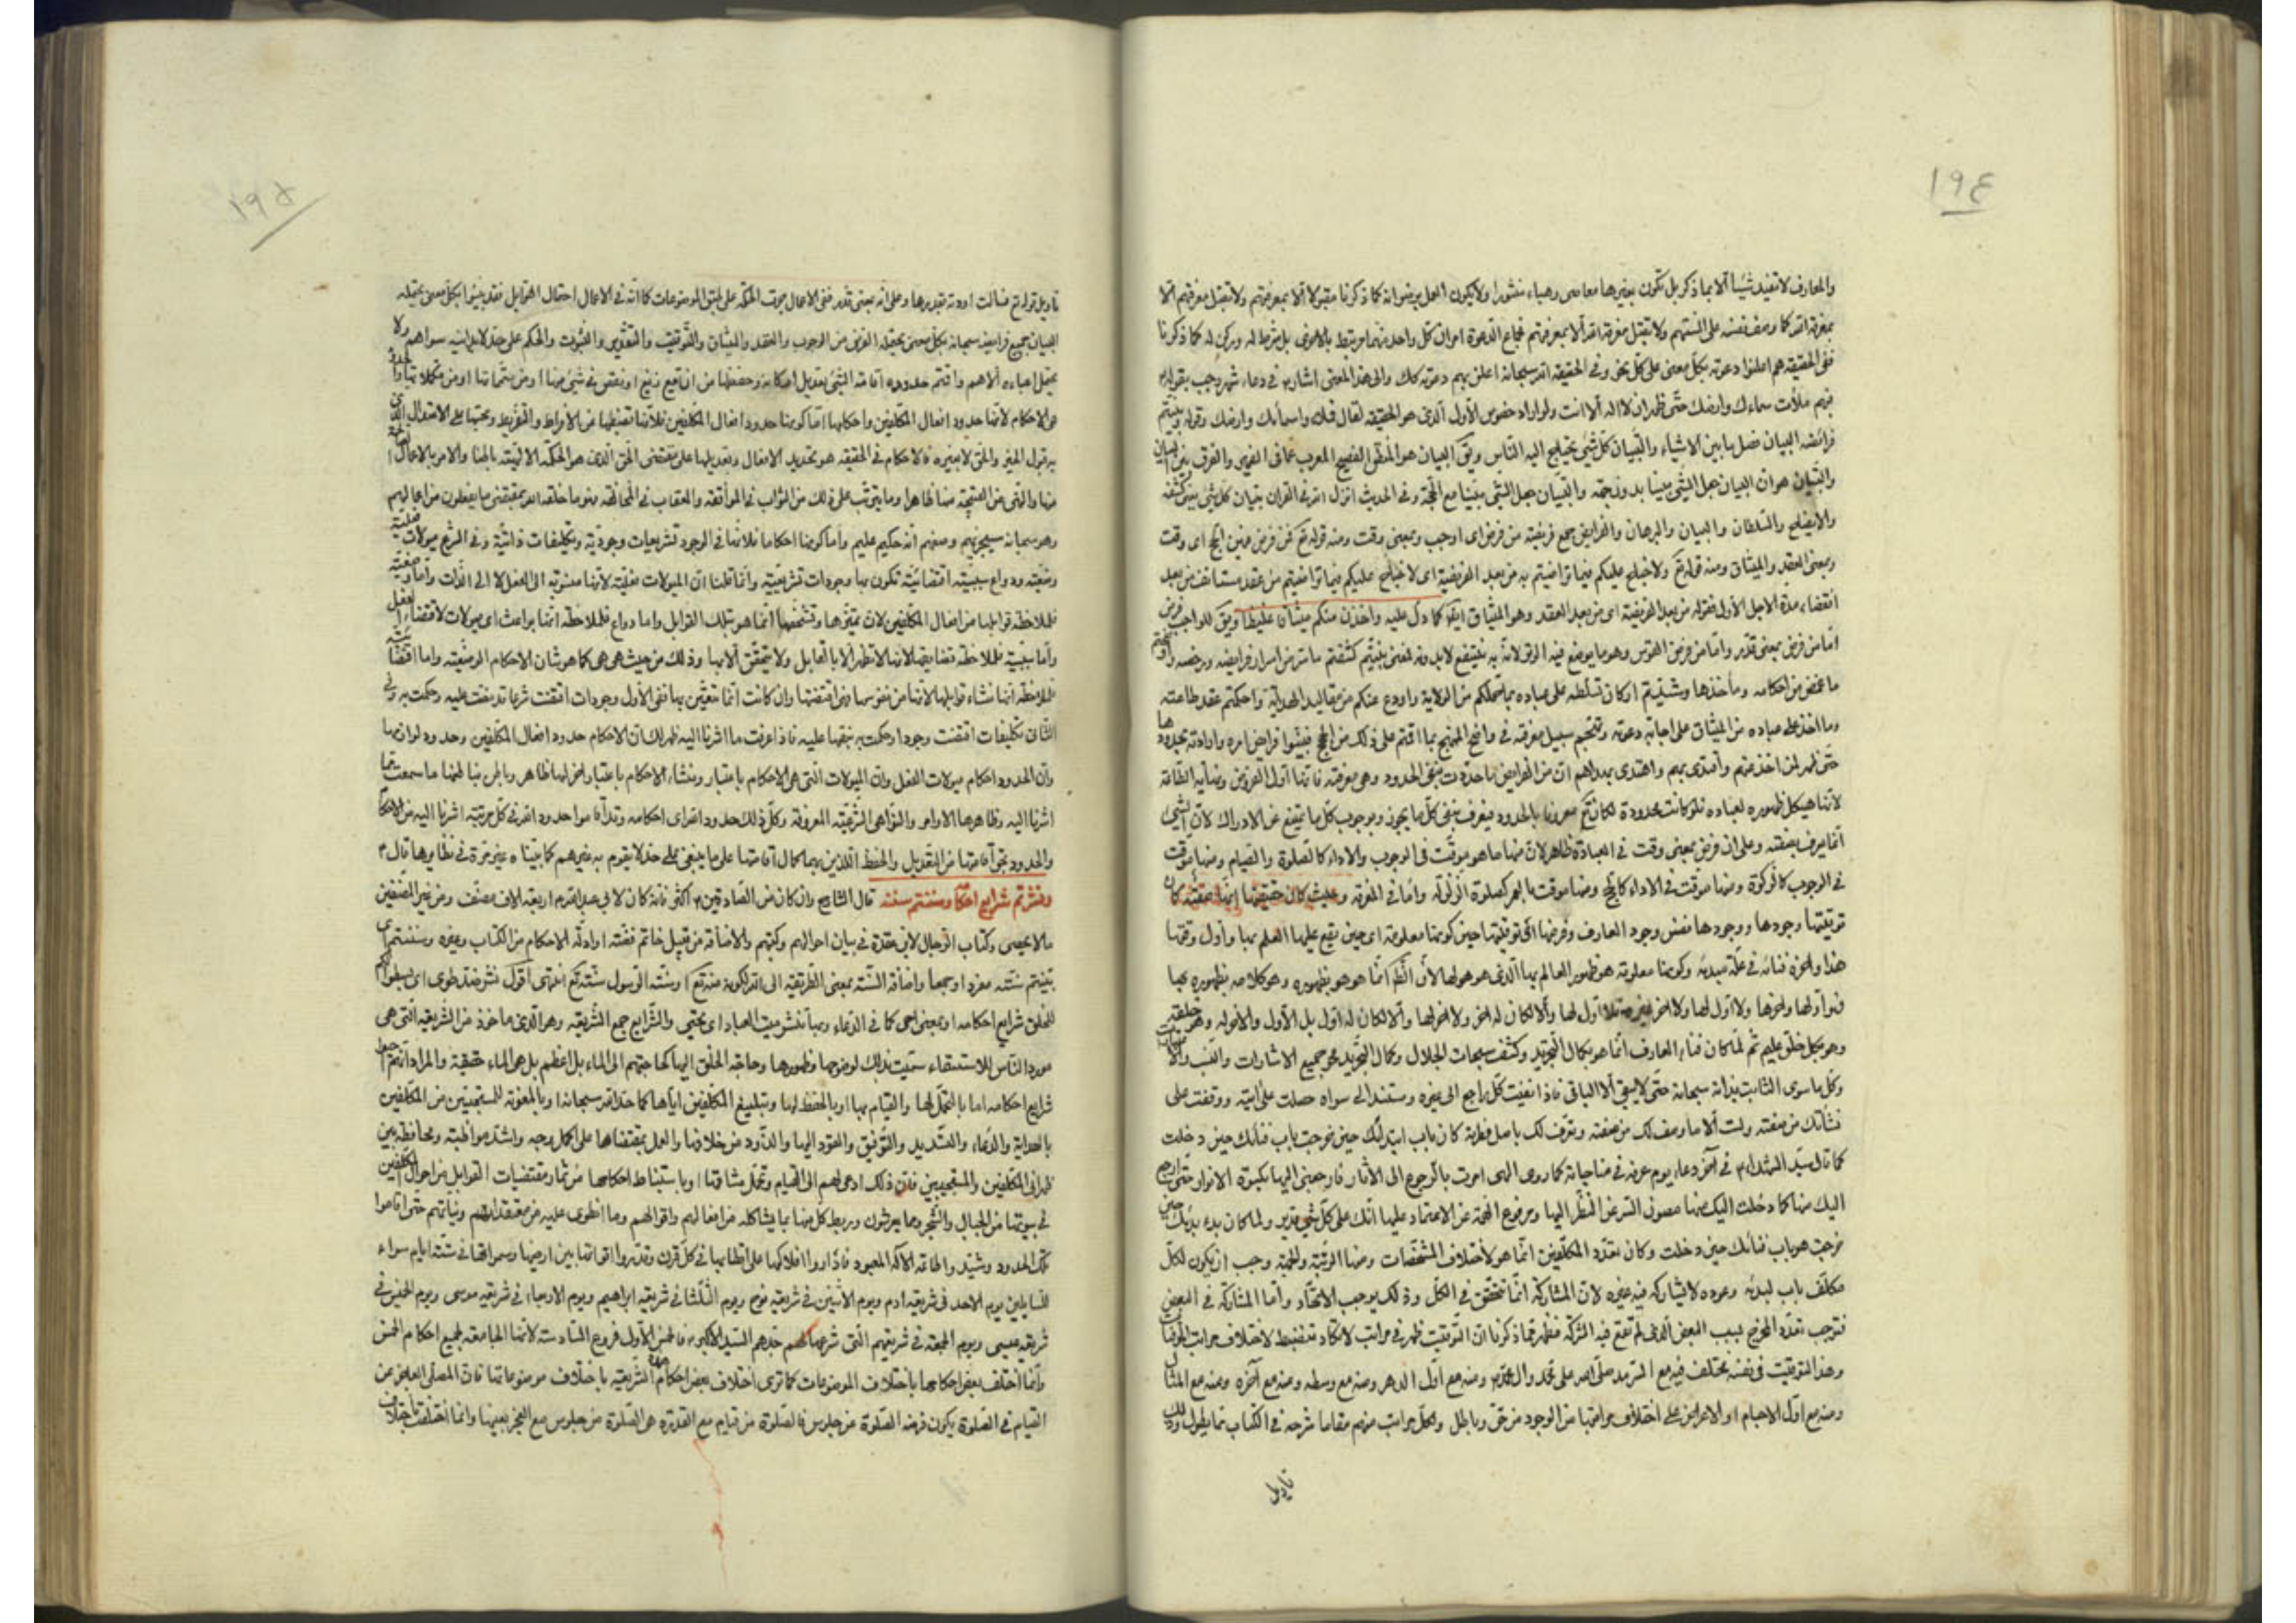 ١٩٤
والمعارف لا تفيد شيئا الا بما ذكر بل تكون بغيرها معاصى وهباء منثورا ولا يكون العمل برضوانه كما ذكرنا مقبولا الا بمعرفتهم ولا تقبل معرفتهم الا
بمعرفة الله كما وصف نفسه على السنتهم ولا تقبل معرفة الله الا بمعرفتهم فجماع الدعوة امران كل واحد منهما مرتبط بالاخر بل شرط له وركن له كما ذكرنا
ففى الحقيقة هم اعلنوا دعوته بكل معنى على كل نحو وفى الحقيقة الله سبحانه اعلن بهم دعوته كذلك والى هذا المعنى اشار في دعاء شهر رجب بقوله
فبهم ملأت سماءك وارضك حتى ظهر ان لا اله الا انت ولو اراد خصوص الأول الذى هو الحقيقة لقال اسمائك وارضك وقوله وبينتم
فرائضه البيان فصل ما بين الاشياء والتبيان كل شئ يحتاج اليه الناس ويق البيان هو المنطق الفصيح المعرب عما فى الضمير والفرق بين البيان
والتبيان هو ان البيان جعل الشئ مبينا بدون حجة والتبيان جعل الشئ مبينا مع الحجة وفى الحديث انزل الله فى القران تبيان كل شئ
والايضاح والسلطان والبيان والبرهان والفرايض جمع فريضة من فرض اى اوجب وبمعنى وقت ومنه قوله تع فمن فرض فيهن الحج اى وقت
وبمعنى العقد والميثاق ومنه قوله تع ولا جناح عليكم فيما تراضيتم به من بعد الفريضة اى لا جناح عليكم فيما تراضيتم من عقد مستانف من بعد
انقضاء مدة الاجل الأول فقوله من بعد الفريضة اى من بعد العقد وهو الميثاق ايضا كما دل عليه واخذن منكم ميثاقا غليظا ويق للواجب فرض
اما من فرض بمعنى قدر واما من فرض القوس وهو ما يوضع فيه الوتر لانه به ينتفع لا بدونه فمعنى بينتم كشفتم ما ستر من اسرار فرايضه ورخصه
ما غمض من احكامه ومأخذها وشيدتم اركان تسلطه على عباده بما حملكم من الولاية واودع عندكم من مقاليد الهداية واحكمتم عقد طاعته
وما اخذ على عباده من الميثاق على اجابة دعوته وفتحتم سبيل معرفته في واضح المنهج بما اقمتم على ذلك من الحجج فبينوا فرايض امره وارادته بحدودها
حتى ظهر لمن اخذ عنهم واقتدى بهم واهتدى بهداهم ان من الفرايض ما حدت بنفى الحدود وهى معرفته فانها اول الفرايض ونهاية الطاقة
لأنها هيكل ظهوره لعباده فلو كانت محدودة لكان تع معروفا بالحدود فيعرف بنفى كل ما يجوز وبوجوب كل ما يمتنع عن الادراك لان الشئ
انما يعرف بصفته وعلى ان فرض بمعنى وقت فى العبادة ظاهر لان منها ما هو موقت فى الوجوب والاداء كالصلوة والصيام ومنها موقت
فى الوجوب كالزكوة ومنها موقت فى الاداء كالحج ومنها موقت بالعمر كصلوة الزلزلة واما فى المعرفة وحيث كان حقيقتها انها صفته كان
توقيتها وجودها ووجودها نفس وجود العارف وفرضها اى توقيتها حين كونها معلومة اى حين يقع عليها العلم بها وأول وقتها
هذا واخره فنائه في علة مبدئه وكونها معلومة هو ظهور العالم بها الذى هو هو لها لأن انما هو هو بظهوره وهو كلامه بظهوره بها
فهو اولها واخرها ولا اول لها ولا اخر لغيره فلا اول لها والا لكان له اخر ولا اخر لها والا لكان له اول بل الأول والاخر له وهو خلقته
وهو بكل خلق عليم ثم لما كان فناء العارف انما هو بكمال التجريد وكشف سبحات الجلال وكمال التجريد محو جميع الاشارات والنسب والاضافات
وكل ما سوى الثابت بذاته سبحانه حتى لا يبقى الا الباقى فاذا نفيت كل راجع الى غيره ومستند الى سواه حصلت على ايته ووقفت على
نشأتك من صفته ولست الا ما وصف لك من صفته وتعرف لك باصل فطرته كان باب ابتدائك حين خرجت باب فنائك حين دخلت
كما قال سيد الشهداء في آخر دعاء يوم عرفه في مناجاته كما روى الهى امرت بالرجوع الى الآثار فارجعنى اليها بكسوة الانوار حتى ارجع
اليك منها كما دخلت اليك منها مصون السر عن النظر اليها ومرفوع الهمة عن الاعتماد عليها انك على كل شئ قدير ولما كان بدء بدئك حين
خرجت هو باب فنائك حين دخلت وكان تعدد المكلفين انما هو لأختلاف المشخصات ومنها الرتبة والجهة وجب ان يكون لكل
مكلف باب لبدئه وعوده لا يشاركه فيه غيره لان المشاركة انما تتحقق فى الكل وذلك يوجب الاتحاد واما المشاركة فى البعض
فتوجب تعدد المخرج بسبب البعض الذى لم تقع فيه الشركة فظهر مما ذكرنا ان التوقيت ظهر فى مراتب لا تكاد تنضبط لاختلاف مراتب الموقتات
وهذا التوقيت فى نفسه يختلف فمنه مع السرمد صلى الله على محمد وال محمد ومنه مع اول الدهر ومنه مع وسطه ومنه مع آخره ومنه مع المثال
ومنه مع اول الاجسام او الاعراض على اختلاف مراتبها من الوجود من حق وباطل ولكل مراتب منهم مقاما شرحه فى الكتاب مما يطول وذلك
تاويل
١٩٥
تاويل قوله تع فسالت اودية بقدرها وعلى انه بمعنى قدر ففى الاعمال جرت الحكمة على طبق الموضوعات كما انه فى الاعمال احتمال القوابل فقد بينوا بكل معنى يحتمله
البيان جميع فرايضه سبحانه بكل معنى يحتمله الفرض من الوجوب والعقد والميثاق والتوقيت والتقدير والثبوت والحكم على حد لا يدانيه سواهم ولا
يحتمل اعباءه الا هم واقمتم حدوده اقامة الشئ تعديل اركانه وحفظها من ان يقع زيغ او نقص فى شئ منها او من متمماتها او من مكملاتها والحدود
هى الاحكام لانها حدود افعال المكلفين واحكامها اما كونها حدود افعال المكلفين فلأنها تضبطها من الافراط والتفريط وبحبسها على الاعتدال الذى
به قبول الميز والحق لا بغيره فالاحكام فى الحقيقة هو تحديد الافعال وتعديلها على مقتضى الحق الذى هو الحكمة الالهية بالهنا والامر بالاعمال الصالحة
منها والنهى عن القبيحة منها ظاهرا وما يترتب على ذلك من الثواب فى الموافقة والعقاب فى المخالفة وهو ما خلقه الله بمقتضى ما يفعلون من اعمالهم
وهو سبحانه سيجزيهم وصفهم انه حكيم عليم واما كونها احكاما فلأنها فى الوجود تشريعات وجودية وتكليفات ذاتية وفى الشرع ميولات فعلية
وضعية ودواع سببية اقتضائية تكون بها وجودات تشريعية وانما قلنا ان الميولات فعلية لأنها منسوبة الى الفعل لا الى الذات واما وضعية
فلملاحظة قوابلها من افعال المكلفين لان تميزها وتشخصها انما هو بتلك القوابل واما دواع فلملاحظة انها بواعث اى ميولات لاقتضاء الفعل
واما سببية فلملاحظة تضايفها لانها لا تظهر الا بالقابل ولا يتحقق الا بها وذلك من حيث هى هى كما هو شان الاحكام الوضعية واما اقتضائية
فلملاحظة انها نشاء قوابلها لانها من نفوسها فهى اقتضتها وان كانت انما تتعين بها ففى الأول وجودات اقتضت شرعا قد بنت عليه وحكمت به وفى
الثانى تكليفات اقتضت وجودا وحكمت به بنفسها عليه فاذا عرفت ما اشرنا اليه ظهر لك ان الاحكام حدود افعال المكلفين وحدود لوازمها
وان الحدود احكام ميولات الفعل وان الميولات التى هى الاحكام باعتبار ومنشاء الاحكام باعتبار اخر لها ظاهر وباطن فباطنها ما سمعت مما
اشرنا اليه وظاهرها الاوامر والنواهى الشرعية المعروفة وكل ذلك حدود الله اى احكامه وقد أقاموا حدود الله فى كل مرتبة اشرنا اليه من الاحكام
والحدود بحق أقامتها من التعديل والحفظ اللذين بهما كمال أقامتها على ما ينبغى على حد لا يقوم به غيرهم كما بيناه غير مرة فى نظايرها قال
ونشرتم شرايع احكامه وسننتم سنته قال الشارح وان كان من الصادقين اكثر فانه كان لابى عبد الله اربعة الاف مصنف ومن غير المصنفين
ما لا يحصى وكتاب الرجال لابن عقدة فى بيان احوالهم وكتبهم والاضافة من قبيل خاتم فضة او ادلة الاحكام من الكتاب وغيره وسننتم اى
بينتم سنته مفردا وجمعا واضافة السنة بمعنى الطريقة الى الله لكونه منه تع او سنة الرسول سنته تع انتهى اقول نشر ضد طوى اى بسطوا لهم
للخلق شرايع احكامه او بمعنى احى كما فى الدعاء وبها تنشر ميت العباد اى يحيى والشرايع جمع الشريعة وهو الذى ماخوذ من الشريعة التى هى
مورد الناس للاستسقاء سميت بذلك لوضوحها وظهورها وحاجة الخلق اليها كحاجتهم الى الماء بل اعظم بل هى الماء حقيقة والمراد انهم احيوا
شرايع احكامه اما بالتحمل لها والقيام بها او بالحفظ لها وتبليغ المكلفين اياها كما حد الله سبحانه او بالمعونة للمستجيبين من المكلفين
بالهداية والدعاء والتسديد والتوفيق والعود اليها والذود من خلافها والعمل بمقتضاها على اكمل وجه واشد مواظبة ومحافظة بين
ظهرانى المكلفين والمستجيبين فان ذلك ادعى لهم الى القيام وتحمل مشاقها او باستنباط احكامها من ثمار مقتضيات القوابل من احوال المكلفين
فى بيوتها من الجبال والشجر ومما يعرشون وربط كل منها بما يشاكله من افعالهم واقوالهم وما انطوى عليه من معتقداتهم ونياتهم حتى اقاموا
تلك الحدود وشيد والطاعة الاله المعبود فأداروا افلاكها على اقطابها فى كل قرن وقدروا اقواتها بين ارضها وسمواتها فى ستة ايام سواء
للسايلين يوم الاحد فى شريعة ادم ويوم الاثنين فى شريعة نوح ويوم الثلثا فى شريعة ابراهيم ويوم الاربعاء فى شريعة موسى ويوم الخميس فى
شريعة عيسى ويوم الجمعة فى شريعتهم التى شرعها لهم جدهم السيد الاكبر فالخمس الأول فروع السادسة لانها الجامعة لجميع احكام الخمس
وانما اختلف بعض احكامها باختلاف الموضوعات كما ترى اختلاف بعض احكام هذه الشريعة باختلاف موضوعاتها فان المصلى العاجز عن
القيام فى الصلوة يكون فرضه الصلوة من جلوس فالصلوة من قيام مع القدرة هى الصلوة من جلوس مع العجز بعينها وانما اختلفت باختلاف